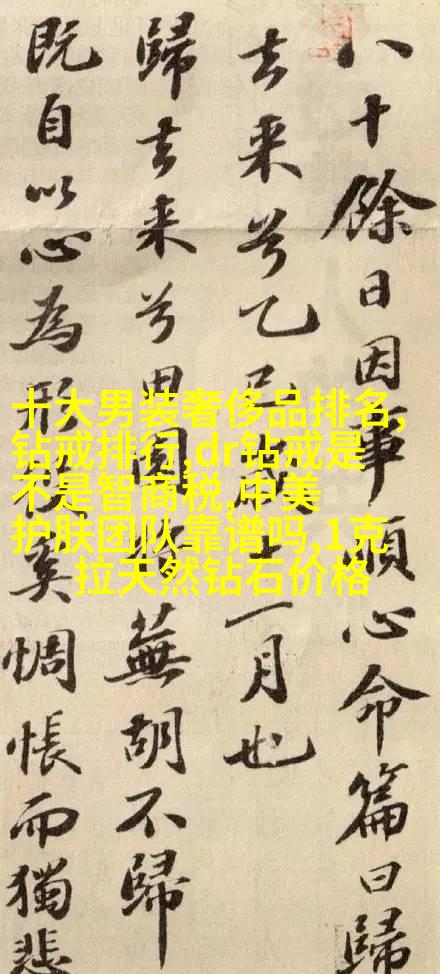 八十餘日因事順心命篇曰歸
去来兮乙巳歲十一月也
歸去来兮田園将蕪胡不歸
既自以心為形役奚惆悵而獨悲
十大男装奢侈品排名,
钻戒排行,dr钻戒是
不是智商税,中美
护肤团队靠谱吗,1克
拉天然钻石价格